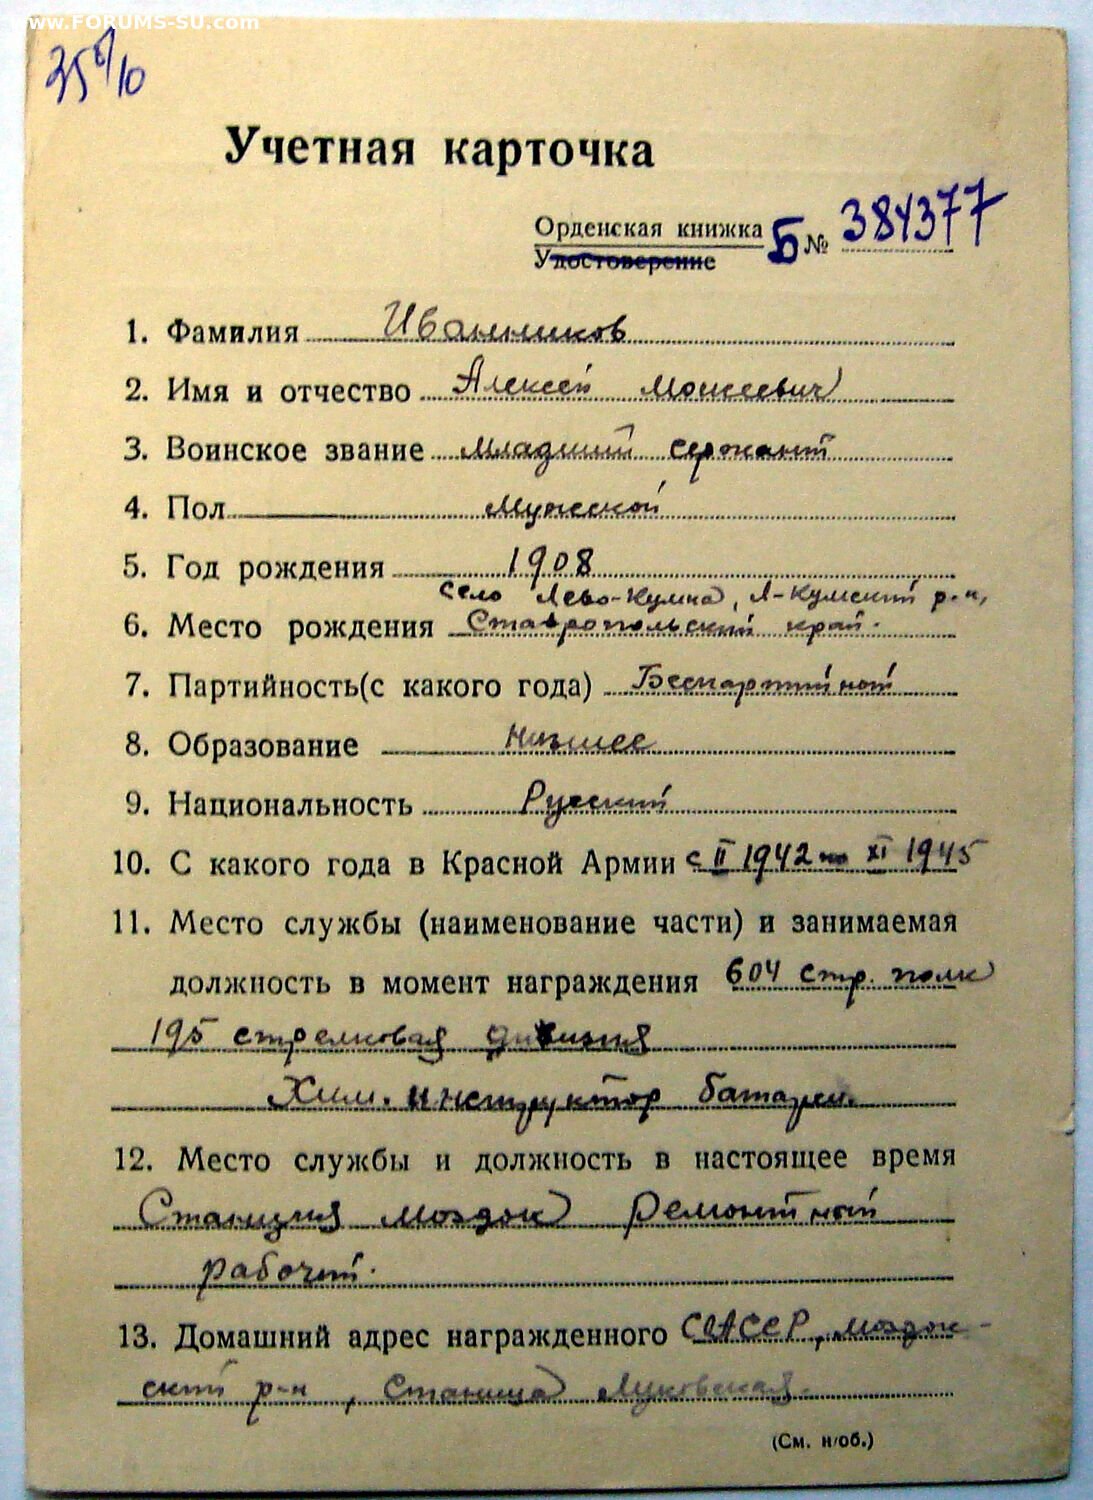 www.FORUMS-SU.com
35 6/10
Учетная карточка
Орденская книжка Б № 384377
Удостоверение
1. Фамилия Иванников
2. Имя и отчество Алексей Моисеевич
3. Воинское звание младший сержант
4. Пол мужской
5. Год рождения 1908
село Лево-Кумка, Л-Кумский р-н,
6. Место рождения Ставропольский край.
7. Партийность(с какого года) Беспартийный
8. Образование низшее
9. Национальность Русский
10. С какого года в Красной Армии с II 1942 по XI 1945
11. Место службы (наименование части) и занимаемая
должность в момент награждения 604 стр. полк
195 стрелковая дивизия
Хим. инструктор батареи.
12. Место службы и должность в настоящее время
Станция Моздок Ремонтный
рабочий.
13. Домашний адрес награжденного СОАССР, Моздок-
ский р-н, станица Луковская.
(См. н/об.)